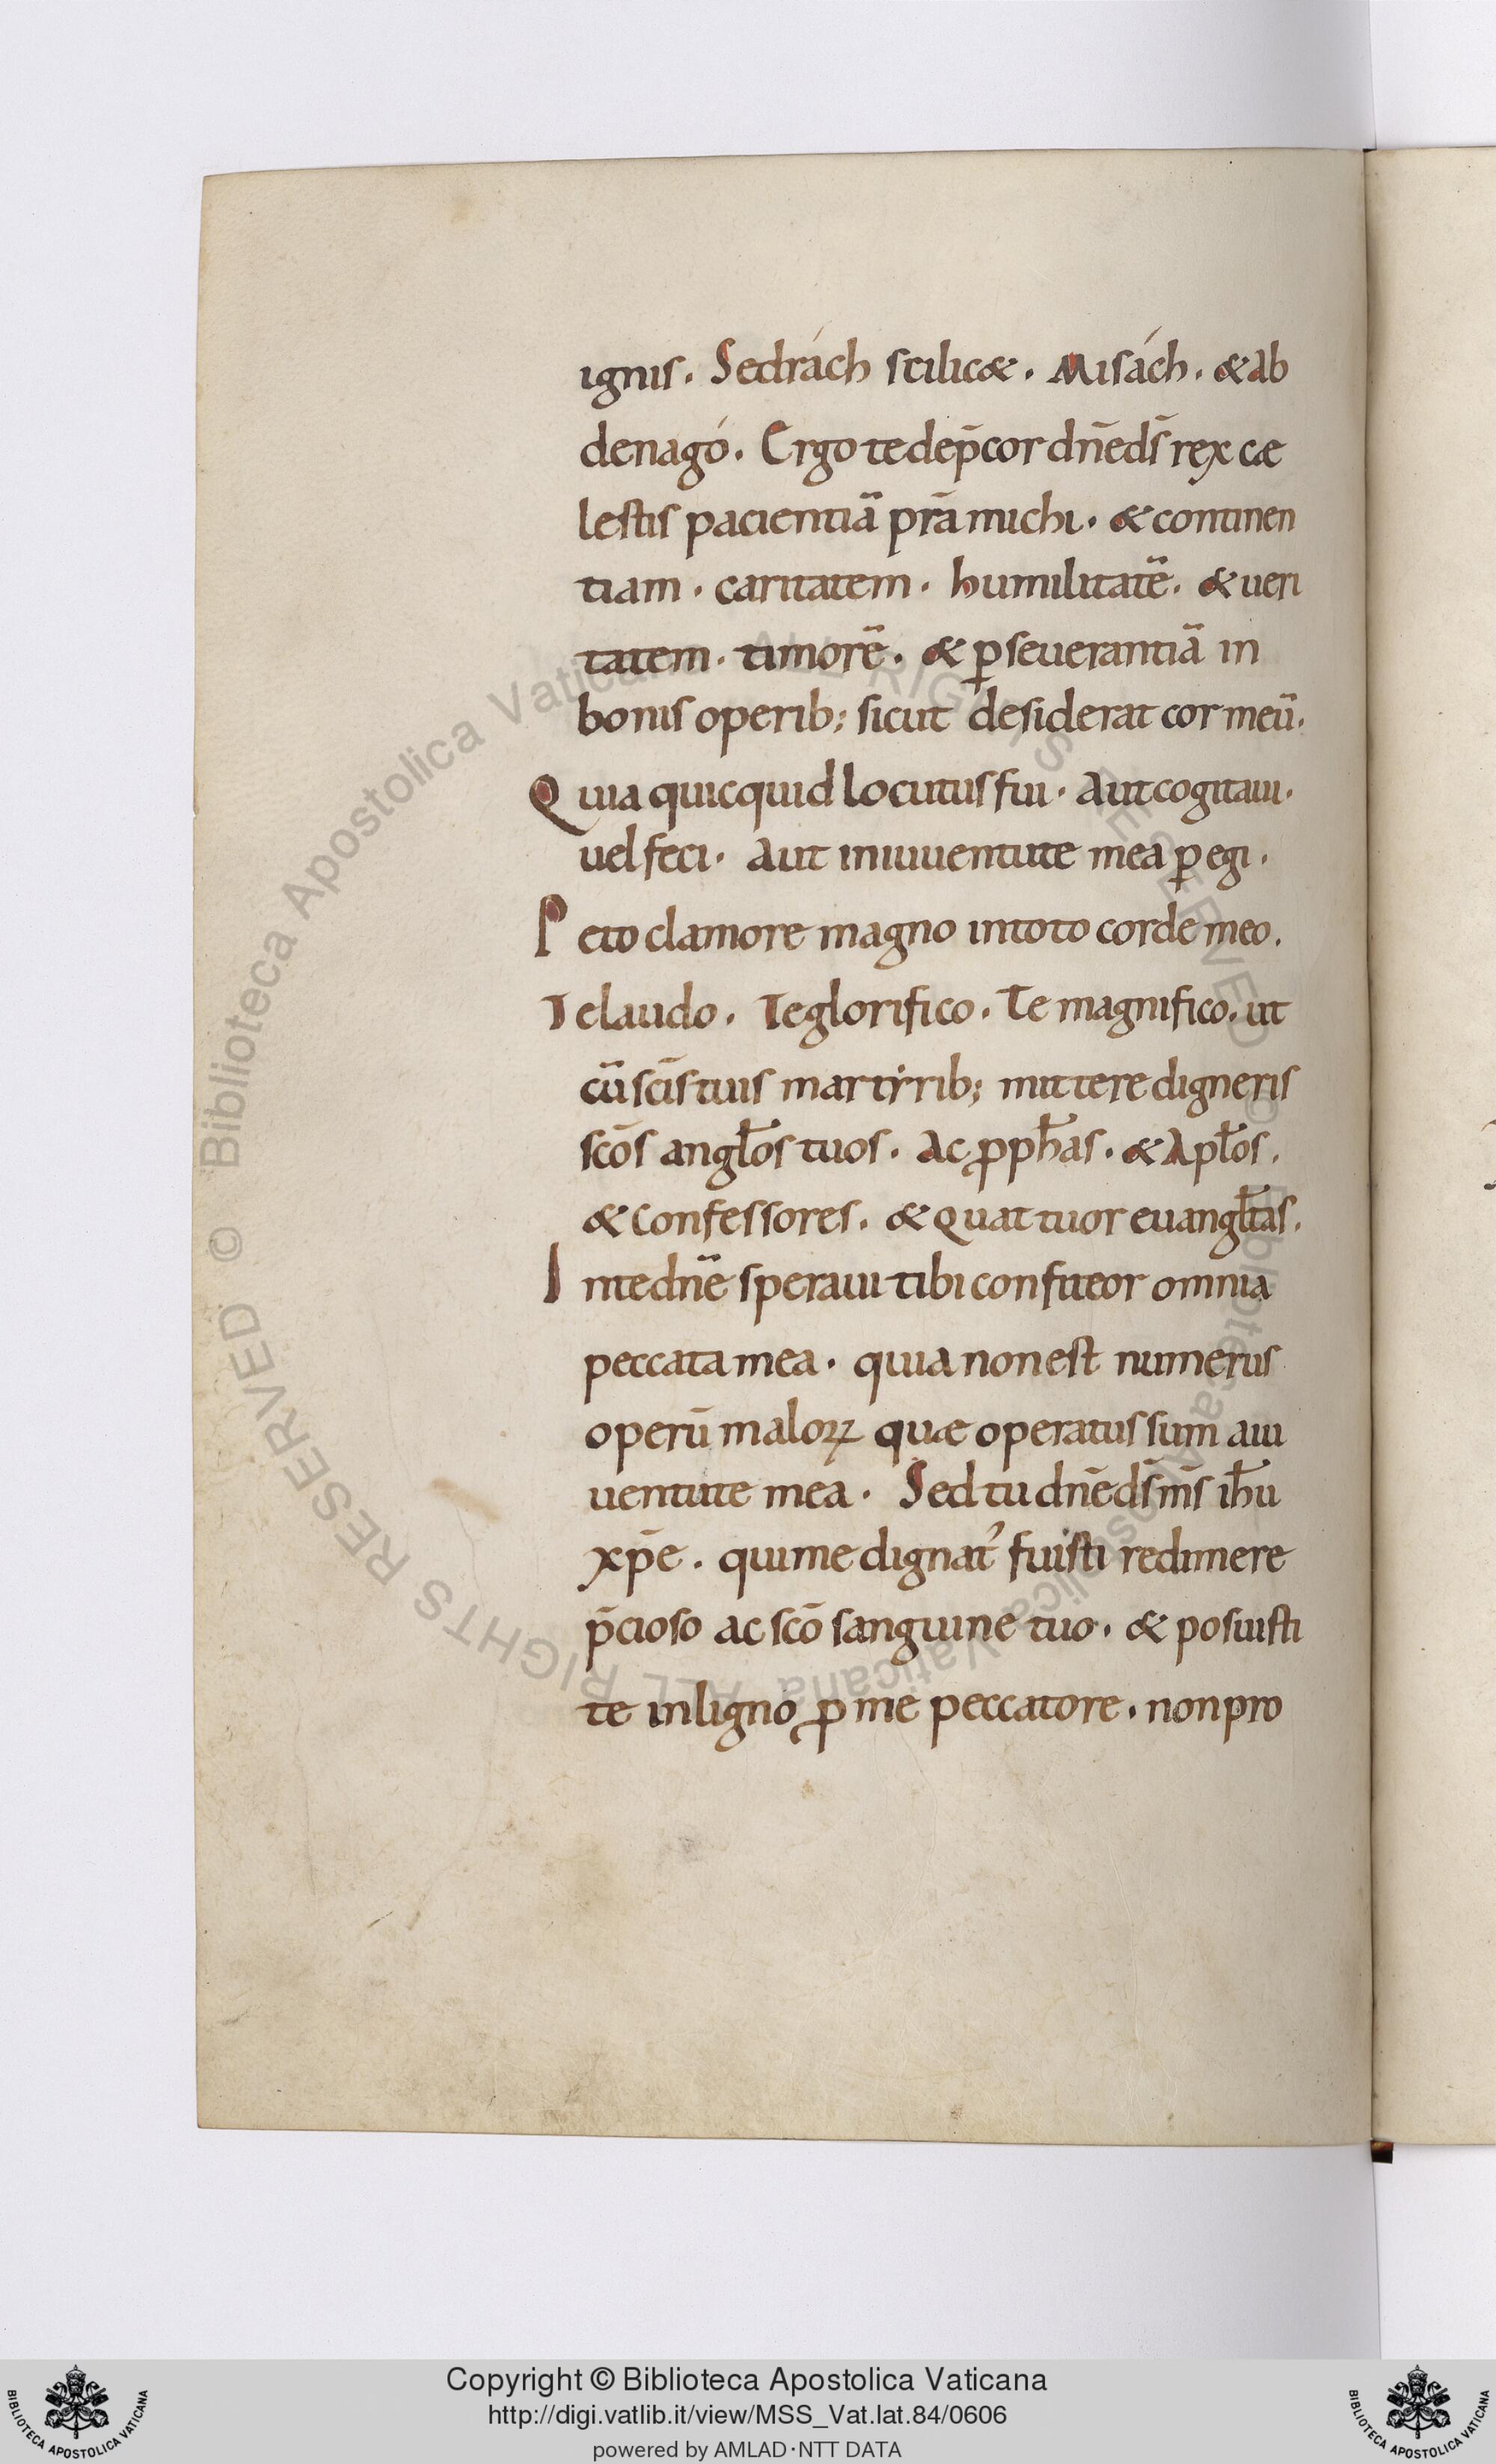 ignis. Sedrách scilic&. Misách. & Ab
denagó. Ergo te dep̄cor dn̄e ds̄ rex cæ
lestis pacientiā pr̄a michi. & continen
tiam. caritatem. humilitatē. & ueri
tatem. timorē. & ꝑseuerantiā in
bonis operib; sicut desiderat cor meū.
Quia quicquid locutus fui. Aut cogitaui.
uel feci. Aut in iuuentute mea ꝑegi.
Peto clamore magno in toto corde meo.
Te laudo. Te glorifico. Te magnifico. ut
cū sc̄is tuis martẏrib; mittere digneris
sc̄os angl̄os tuos. Ac ꝓph̄as. & Apl̄os.
& Confessores. & Quattuor euangl̄tas.
In te dn̄e speraui tibi confiteor omnia
peccata mea. quia non est numerus
operū maloꝝ quæ operatus sum a iu
uentute mea. Sed tu dn̄e ds̄ ms̄ ih̄u
xp̄e. qui me dignat᾽ fuisti redimere
p̄cioso ac sc̄o sanguine tuo. & posuisti
te in ligno ꝓ me peccatore. non pro
Biblioteca Apostolica Vaticana ALL RIGHTS RESERVED ©
Biblioteca Apostolica Vaticana ALL RIGHTS RESERVED ©
Copyright © Biblioteca Apostolica Vaticana
http://digi.vatlib.it/view/MSS_Vat.lat.84/0606
powered by AMLAD·NTT DATA
BIBLIOTECA APOSTOLICA VATICANA
BIBLIOTECA APOSTOLICA VATICANA